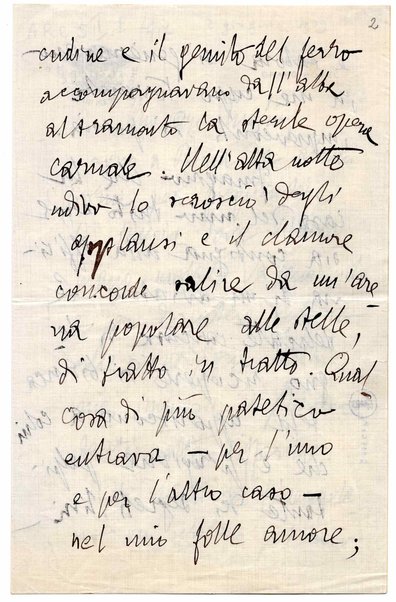 2
cudine e il gemito del ferro
accompagnavano dall'alba
al tramonto la sterile opera
carnale. Nell'alta notte
udivo lo scroscio degli
applausi e il clamore
concorde salire da un'are-
na popolare alle stelle,
di tratto in tratto. Qual
cosa di più patetico
entrava – per l'uno
e per l'altro caso –
nel mio folle amore;